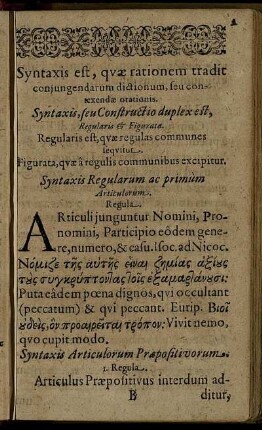 Syntaxis est, qvæ rationem tradit
conjungendarum dictionum, seu con-
texendæ orationis.
Syntaxis, seu Constructio duplex est,
Regularis & Figurata.
Regularis est, qvæ regulas communes
seqvitur.
Figurata, qvæ à regulis communibus excipitur.
Syntaxis Regularum ac primùm
Articulorum.
Regula.
ARticuli junguntur Nomini, Pro-
nomini, Participio eôdem gene-
re, numero, & casu. Isoc. ad Nicoc.
Νόμιζε τῆς αὐτῆς εἶναι ζημίας ἀξίους
τοὺς συγκρύπτονλας τοῖς ἐξαμαρλάνουσι:
Puta eâdem pœna dignos, qvi occultant
(peccatum) & qvi peccant. Eurip. Βιοῖ
οὐδεὶς, ὃν προαιρεῖται τρόπον: Vivit nemo,
qvo cupit modo.
Syntaxis Articulorum Præpositivorum.
1. Regula.
Articulus Præpositivus interdum ad-
B ditur,